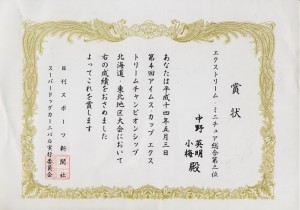 賞状
エクストリーム・ミニチュア総合第三位
中野 英明
小梅 殿
あなたは平成十四年五月三日
第４回アイムス・カップ エクス
トリームチャンピオンシップ
北海道・東北地区大会において
右の成績をおさめました
よってこれを賞します
日刊スポーツ新聞社
スーパードッグカーニバル実行委員会